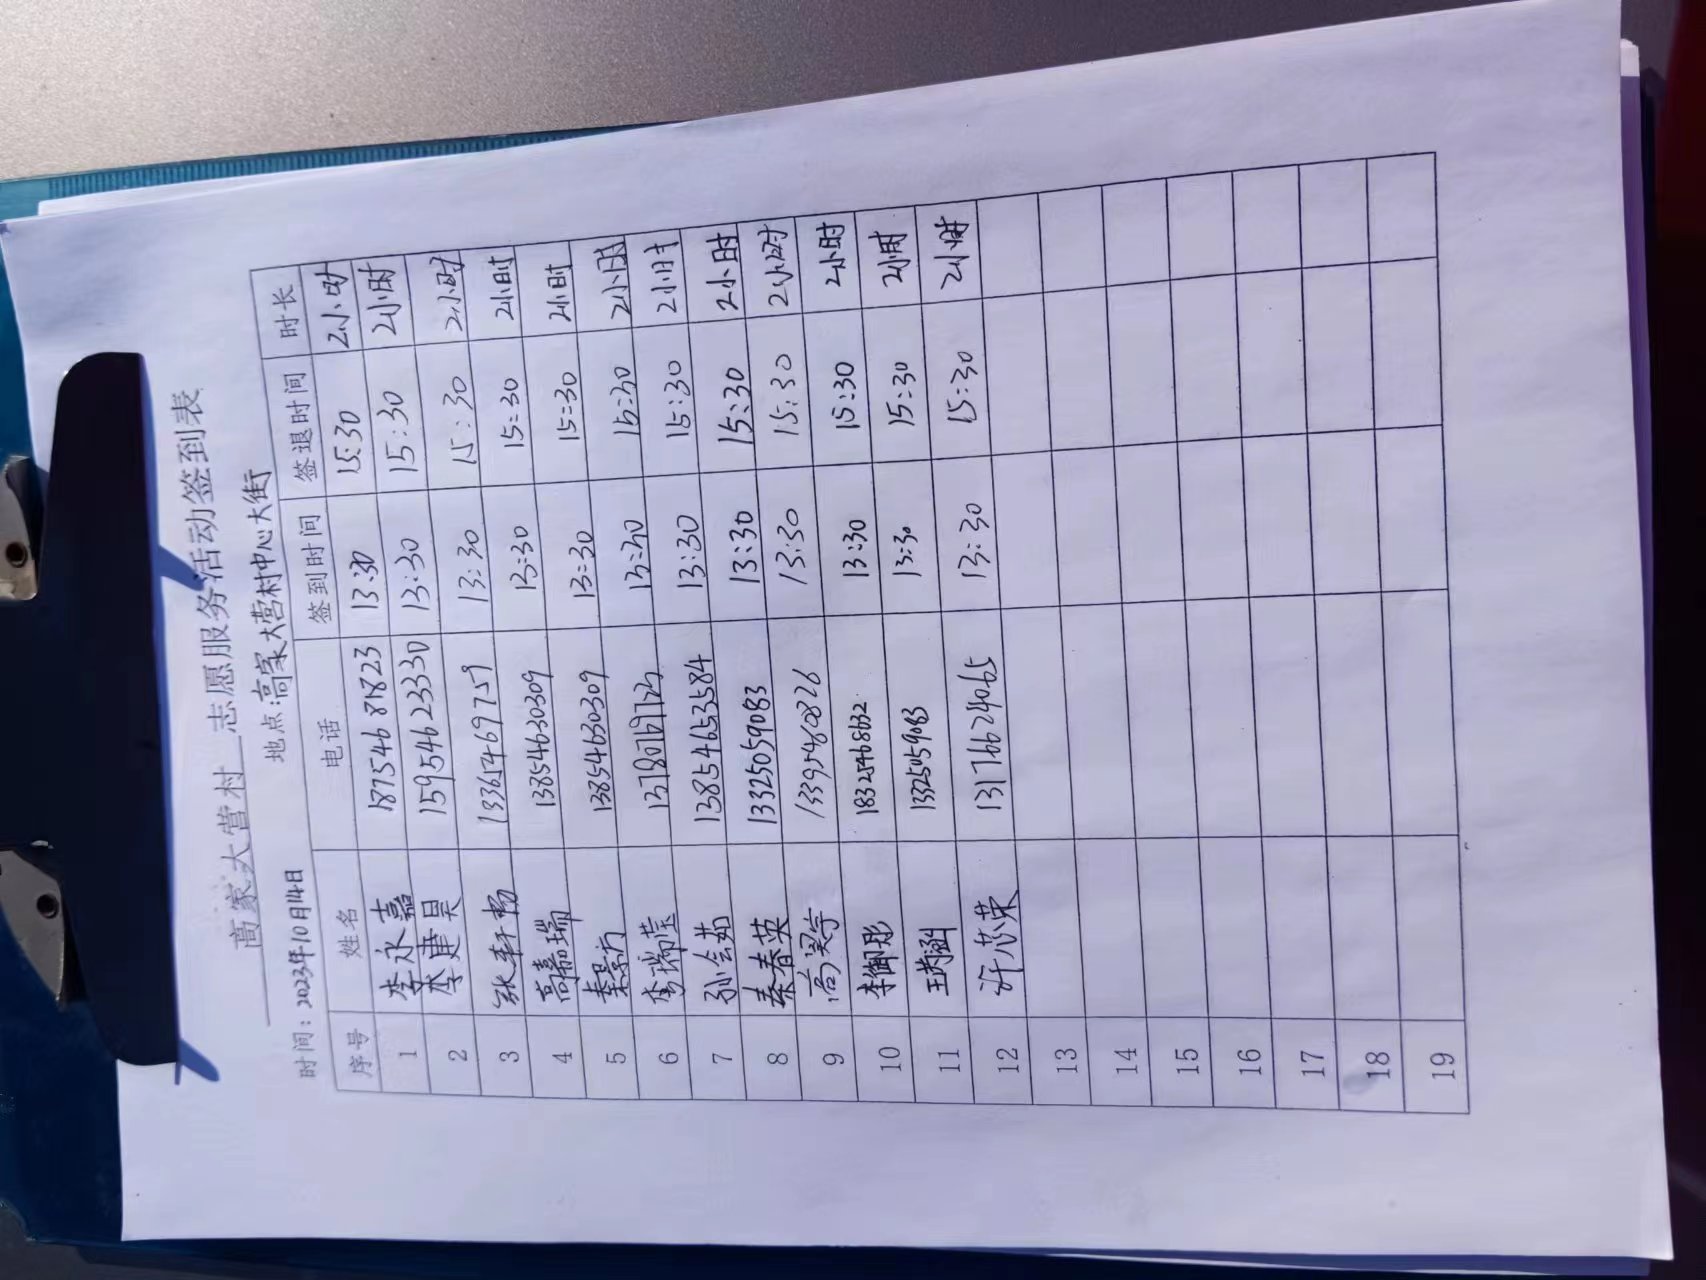 高家大营村 志愿服务活动签到表
时间：2023年10月14日 地点：高家大营村中心大街
序号 姓名 电话 签到时间 签退时间 时长
1 李永嘉 18754681823 13:30 15:30 2小时
2 李建昊 15954623330 13:30 15:30 2小时
3 张轩畅 13365469759 13:30 15:30 2小时
4 高嘉瑞 13854630309 13:30 15:30 2小时
5 秦景方 13854630309 13:30 15:30 2小时
6 李瑞莹 13:30 15:30 2小时
7 孙会茹 13854653584 13:30 15:30 2小时
8 秦春英 13325059083 13:30 15:30 2小时
9 13395480826 13:30 15:30 2小时
10 李御彤 18325468632 13:30 15:30 2小时
11 13325059083 13:30 15:30 2小时
12 许芯荣 13176624065 13:30 15:30 2小时
13
14
15
16
17
18
19